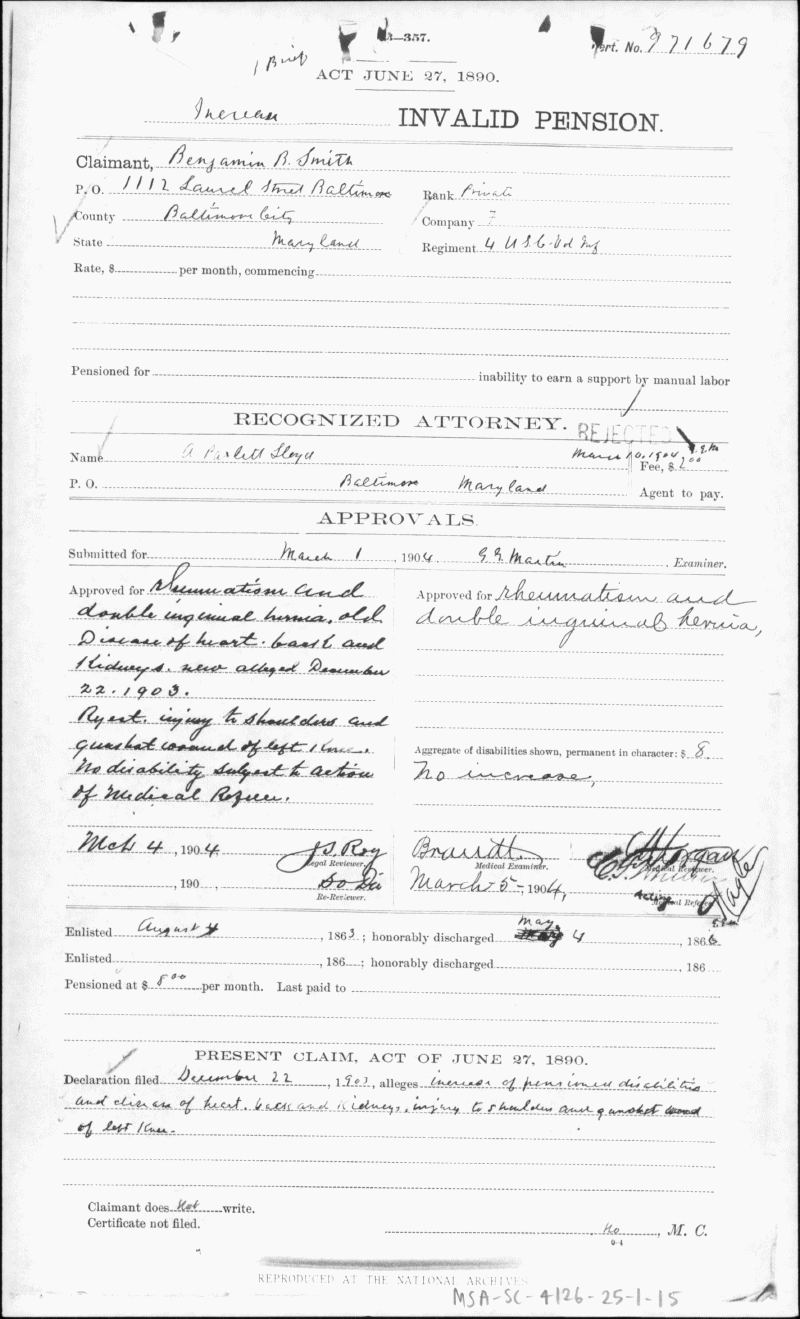 3—357.
Cert. No. 971679
1 Brief
ACT JUNE 27, 1890.
Increase INVALID PENSION.
Claimant, Benjamin B. Smith
P. O. 1112 Laurel Street Baltimore
Rank Private
County Baltimore City
Company
State Maryland
Regiment 4 U.S.C. Vol Inf
Rate, $ per month, commencing
Pensioned for inability to earn a support by manual labor
RECOGNIZED ATTORNEY.
REJECTED
Name A Parlett Lloyd
March 10, 1904,
Fee, $2.00
P. O. Baltimore Maryland
Agent to pay.
APPROVALS.
Submitted for March 1, 1904 Martin, Examiner.
Approved for rheumatism and
double inguinal hernia, old
Disease of heart. back and
Kidneys. new alleged December
22. 1903.
Reject. injury to shoulders and
gunshot wound of left Knee.
No disability subject to action
of Medical Referee.
Mch 4, 1904 J.S. Roy
Legal Reviewer.
, 190
Re-Reviewer.
Approved for rheumatism and
double inguinal hernia,
Aggregate of disabilities shown, permanent in character: $ 8
No increase,
Medical Examiner.
Medical Reviewer.
March 5-, 1904,
Acting Medical Referee.
Enlisted August 4, 1863; honorably discharged May 4 1866
Enlisted , 186 ; honorably discharged , 186
Pensioned at $ 8 00 per month. Last paid to
PRESENT CLAIM, ACT OF JUNE 27, 1890.
Declaration filed December 22, 1903, alleges increase of pensioned disabilities
and disease of heart. back and Kidneys, injury to shoulders and gunshot wound
of left Knee.
Claimant does not write.
Certificate not filed.
No, M. C.
0-4
REPRODUCED AT THE NATIONAL ARCHIVES
MSA-SC-4126-25-1-15